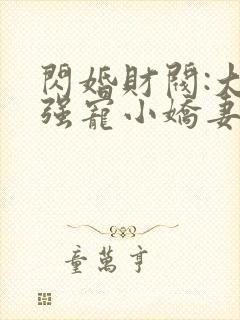 閃婚財閥:大
强寵小嬌妻
童萬亨